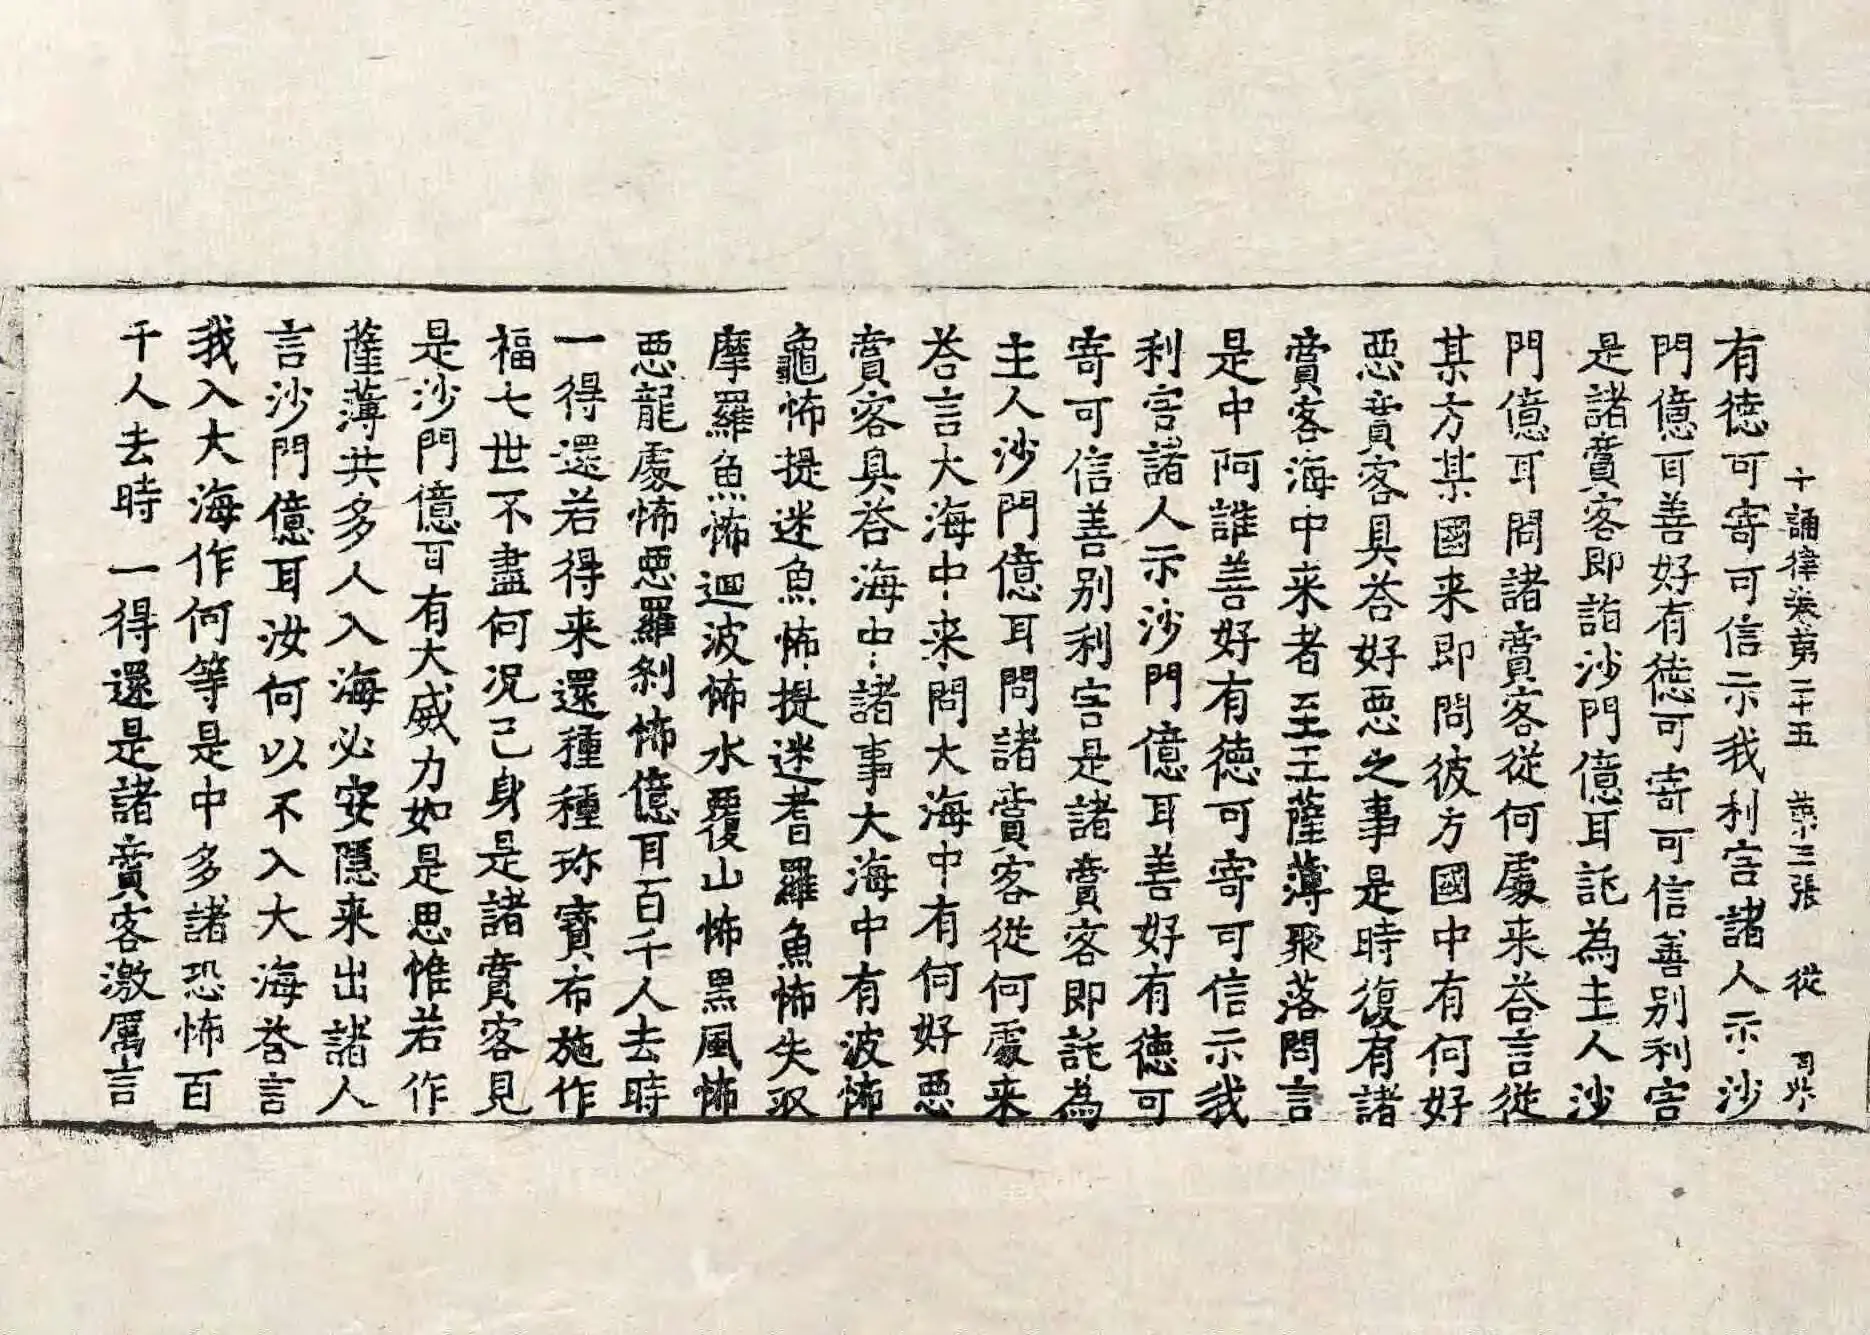 十誦律卷第二十五　第三張　從
有徳可寄可信示我利害諸人示沙
門億耳善好有徳可寄可信善別利害
是諸賈客即詣沙門億耳託為主人沙
門億耳問諸賈客從何處来荅言從
某方某國来即問彼方國中有何好
惡賈客具荅好惡之事是時復有諸
賈客海中来者至王薩薄聚落問言
是中阿誰善好有徳可寄可信示我
利害諸人示沙門億耳善好有徳可
寄可信善別利害是諸賈客即託為
主人沙門億耳問諸賈客從何處来
荅言大海中来問大海中有何好惡
賈客具荅海中諸事大海中有波怖
龜怖提迷魚怖提迷耆羅魚怖失収
摩羅魚怖迴波怖水覆山怖黒風怖
惡龍處怖惡羅剎怖億耳百千人去時
一得還若得来還種種珎寶布施作
福七世不盡何況己身是諸賈客見
是沙門億耳有大威力如是思惟若作
薩薄共多人入海必安隱来出諸人
言沙門億耳汝何以不入大海荅言
我入大海作何等是中多諸恐怖百
千人去時一得還是諸賈客激厲言